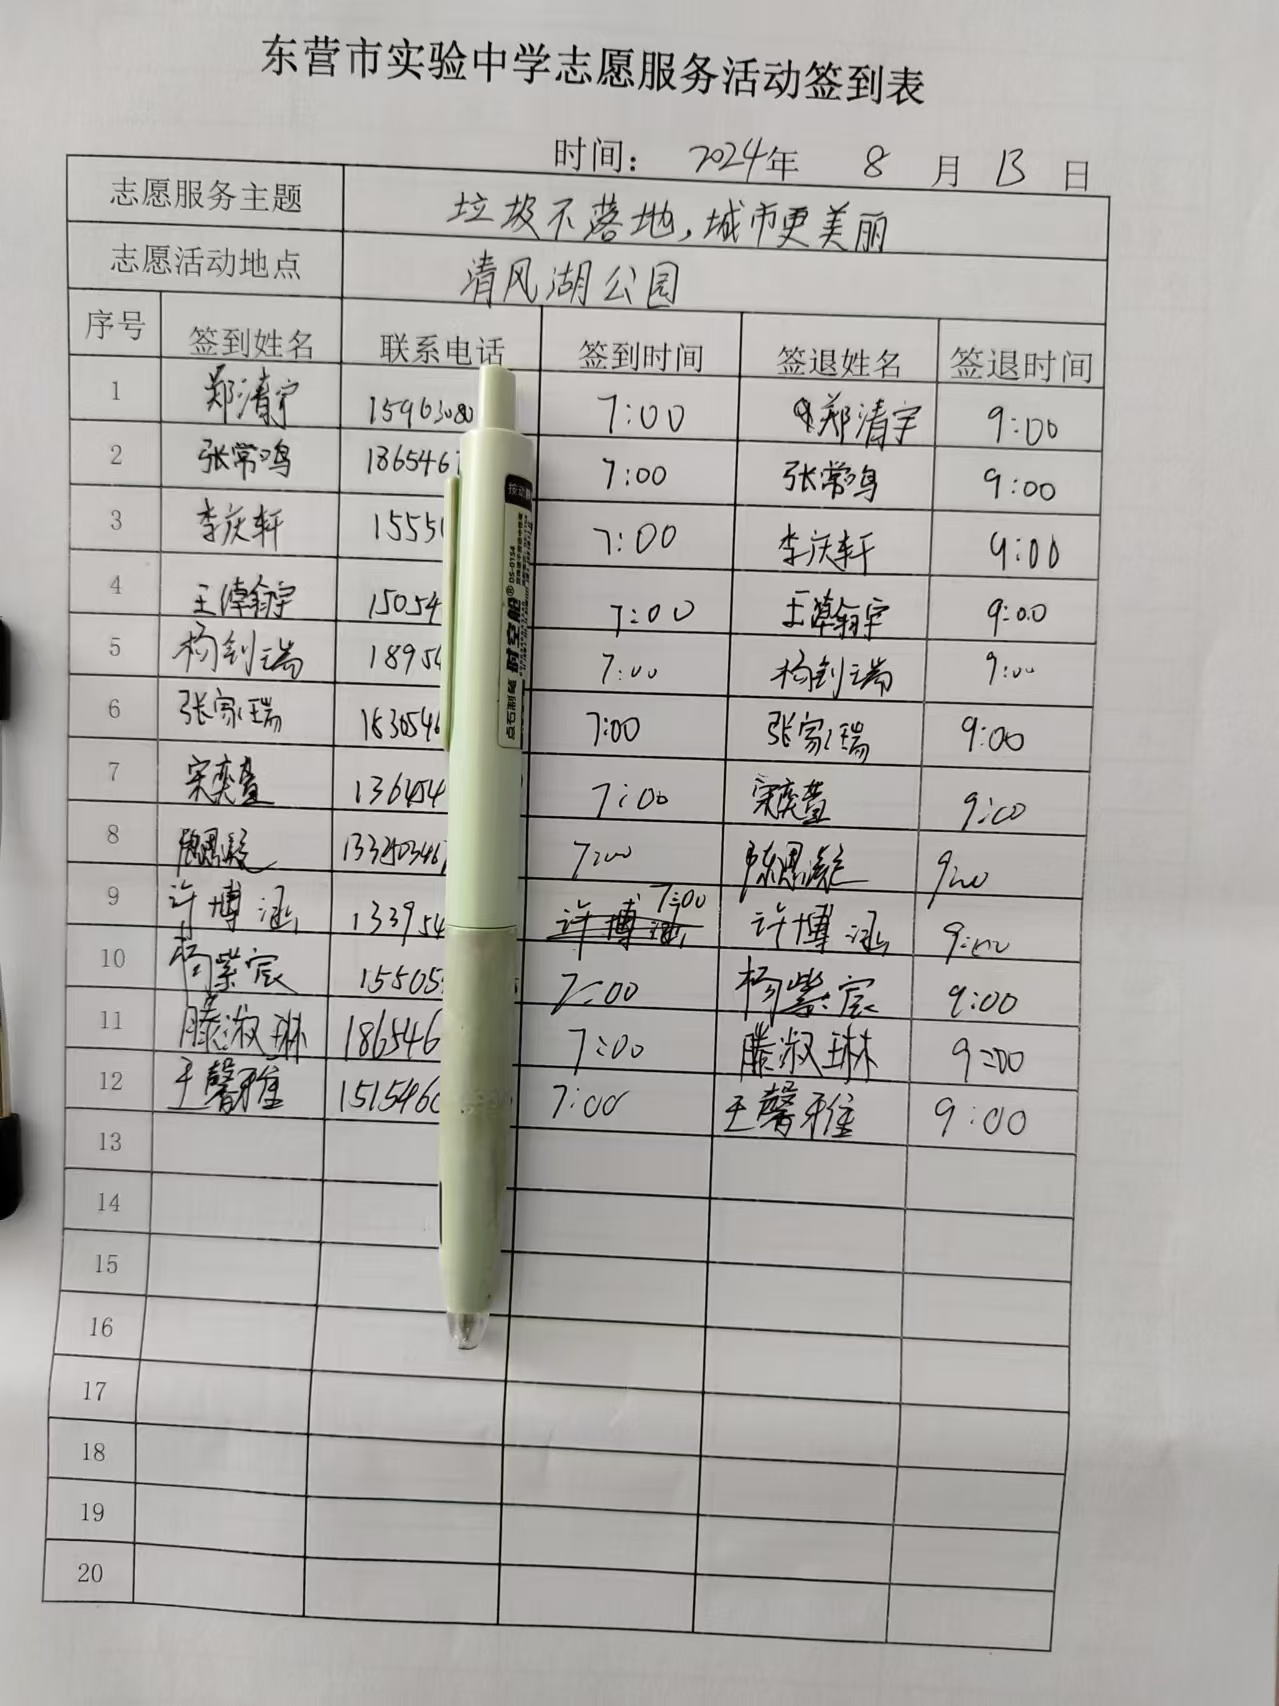 东营市实验中学志愿服务活动签到表
时间: 2024年 8 月 13 日
志愿服务主题 垃圾不落地,城市更美丽
志愿活动地点 清风湖公园
序号 签到姓名 联系电话 签到时间 签退姓名 签退时间
1 郑清宇 15963080 7:00 郑清宇 9:00
2 张常鸣 186546 7:00 张常鸣 9:00
3 李庆轩 1555 7:00 李庆轩 9:00
4 王瀚宇 15054 7:00 王瀚宇 9:00
5 杨钊瑞 1895 7:00 杨钊瑞 9:00
6 张家瑞 1830546 7:00 张家瑞 9:00
7 宋奕萱 136454 7:00 宋奕萱 9:00
8 133 7:00 陈思凝 9:00
9 许博涵 133954 许博涵 7:00 许博涵 9:00
10 杨紫宸 15505 7:00 杨紫宸 9:00
11 滕淑琳 186546 7:00 滕淑琳 9:00
12 王馨雅 1515460 7:00 王馨雅 9:00
13
14
15
16
17
18
19
20
按动
点石制笔 时空船® DS-0154